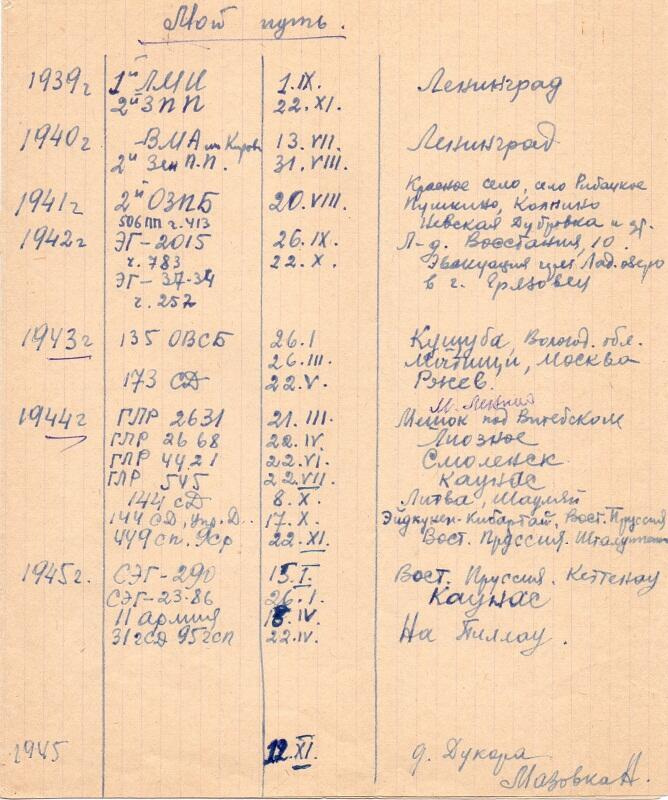 Мой путь.
1939г 1й ЛМИ 1.IX. Ленинград
2й ЗПП 22.XI.
1940г ВМА им Кирова 13.VII. Ленинград
2й Зен П.П. 31.VIII.
Красное село, село Рыбацкое
1941г 2й ОЗПБ 20.VIII. Пушкино, Колпино
506ПП г.413 Невская Дубровка и др.
1942г ЭГ-2015 26.IX. Л-д. Восстания, 10.
ч. 783 22.X. Эвакуация чрез Лад. озеро
ЭГ-37-34 в г. Грязовец
ч. 257
1943г 135 ОВСБ 26.I Кущуба, Вологод. обл.
26.III. Мытищи, Москва
173 СД 22.V. Ржев.
М. Лежний
1944г ГЛР 2631 21.III. Мешок под Витебском
ГЛР 2668 22.IV. Лиозное
ГЛР 4421 22.VI. Смоленск
ГЛР 545 22.VII. Каунас
144 СД 8.X. Литва, Шауляй
144 СД, Упр. Д.. 17.X. Эйдкунен-Кибартай, Вост. Пруссия
449 сп. 9ср 22.XI. Вост. Пруссия.
1945г. СЭГ-290 15.I. Вост. Пруссия. Кеттенау
СЭГ-23-86 26.I. Каунас
11 армия 18.IV.
31гСД 95гсп 22.IV. На Пиллау.
1945 12.XI. д. Дукора
Мазовка Н.